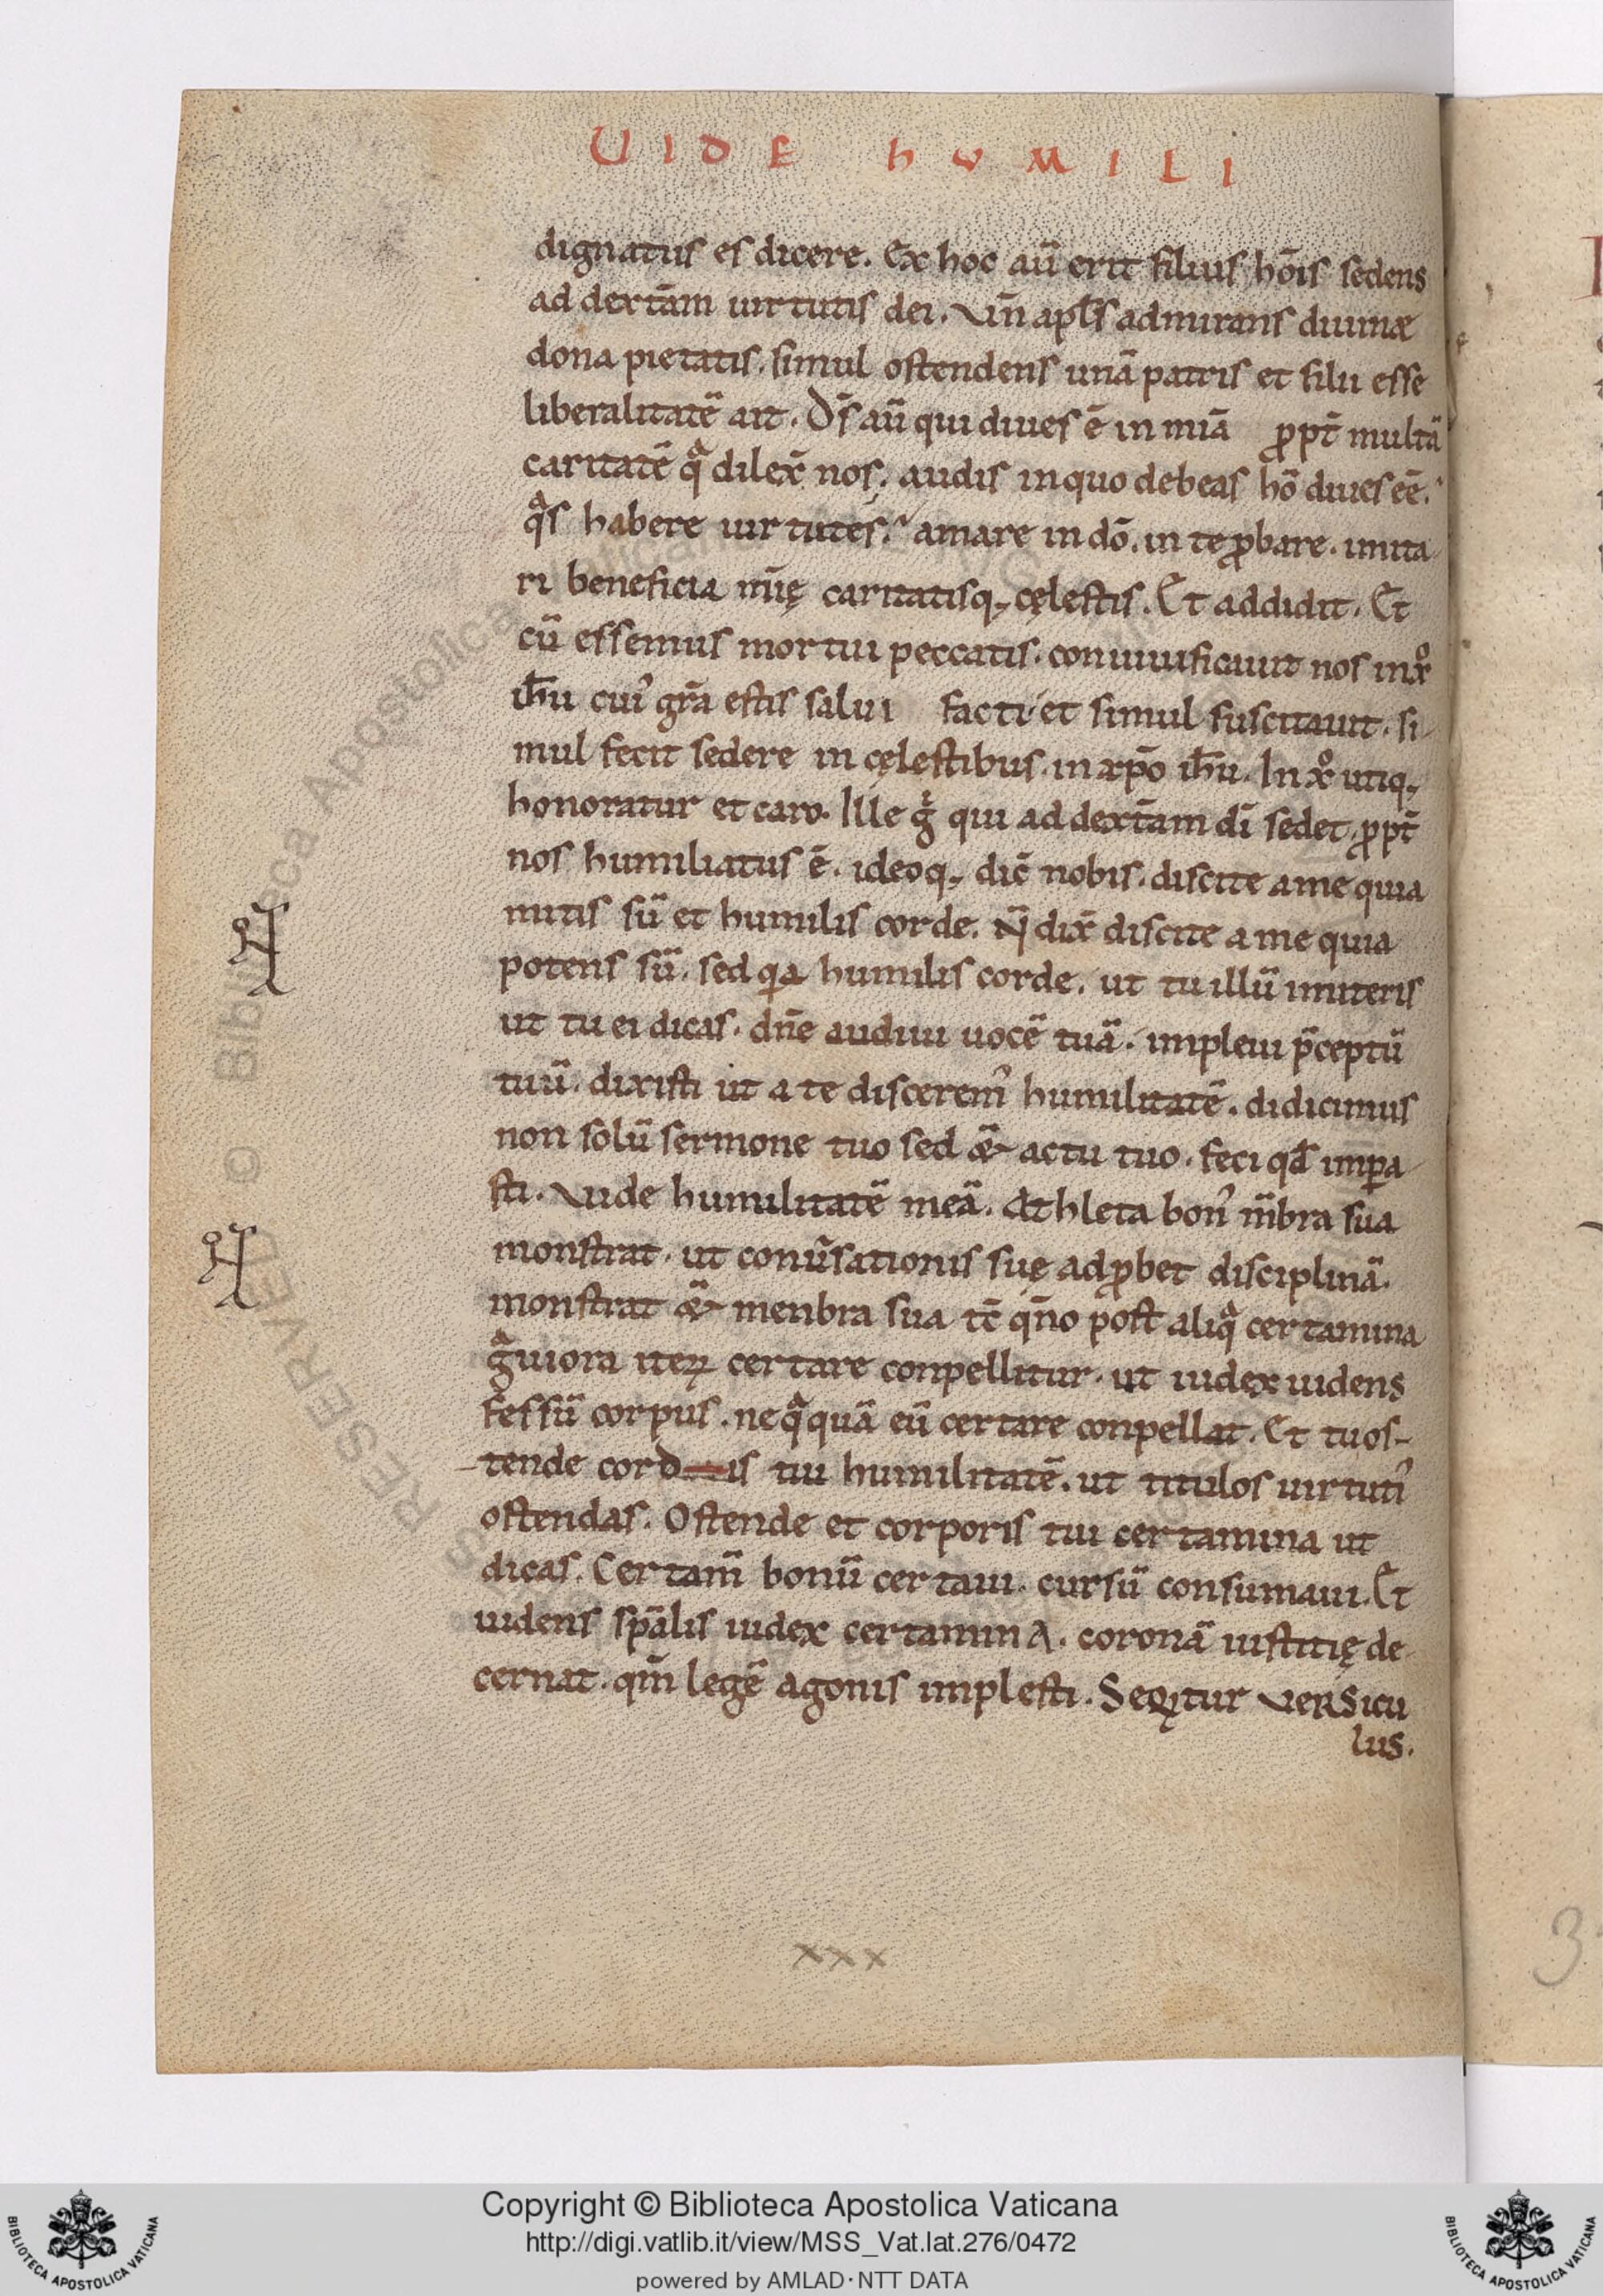 UIDE hVMILI
dignatus es dicere. Ex hoc aū erit filius hōis sedens
ad dextām uirtutis dei. Vn̄ apl̄s admirans diuinæ
dona pietatis. simul ostendens unā patris et filii esse
liberalitatē ait. Ds̄ aū qui diues ē in mīa ꝓpt̄ multā
caritatē qͣ dilex̄ nos. audis in quo debeas hō diues eē.
qͣs habere uirtutes. amare in dō. in te ꝓbare. imita
ri beneficia mīę caritatisq; cęlestis. Et addidit. Et
cū essemus mortui peccatis. conuiuificauit nos in xͦ
ih̄u cui᾽ gr̄a estis salui facti et simul suscitauit. si
mul fecit sedere in cęlestibus. in xp̄o ih̄u. In xͦ utiq;
honoratur et caro. Ille gͥ qui ad dextām dī sedet. ꝓpt̄
nos humiliatus ē. ideoq; dic̄ nobis. discite a me quia
mitis sū et humilis corde. N̄ dix̄ discite a me quia
potens sū. sed qͥa humilis corde. ut tu illū imiteris
ut tu ei dicas. dn̄e audiui uocē tuā. impleui p̄ceptū
tuū. dixisti ut a te discerem᾽ humilitatē. didicimus
non solū sermone tuo sed &̄ actu tuo. feci qd̄ impa
sti. Vide humilitatē meā. Athleta bon᾽ m̄bra sua
monstrat. ut conūsationis suę adꝓbet disciplinā.
monstrat &̄ menbra sua tc̄ qn̄o post aliqͣ certamina
gͣuiora iteꝝ certare conpellitur. ut iudex uidens
fessū corpus. neqͣquā eū certare conpellat. Et tu os-
tende cordis tui humilitatē. ut titulos uirtuti᾽
ostendas. Ostende et corporis tui certamina ut
dicas. Certam̄ bonū certaui. cursū consumaui. Et
uidens sp̄alis iudex certaminA. coronā iustitię de
cernat. qm̄ legē agonis implesti. Seqͥtur VeRSicu
lus.
xxx
3
Copyright © Biblioteca Apostolica Vaticana
http://digi.vatlib.it/view/MSS_Vat.lat.276/0472
powered by AMLAD·NTT DATA
BIBLIOTECA APOSTOLICA VATICANA
BIBLIOTECA APOSTOLICA VATICANA